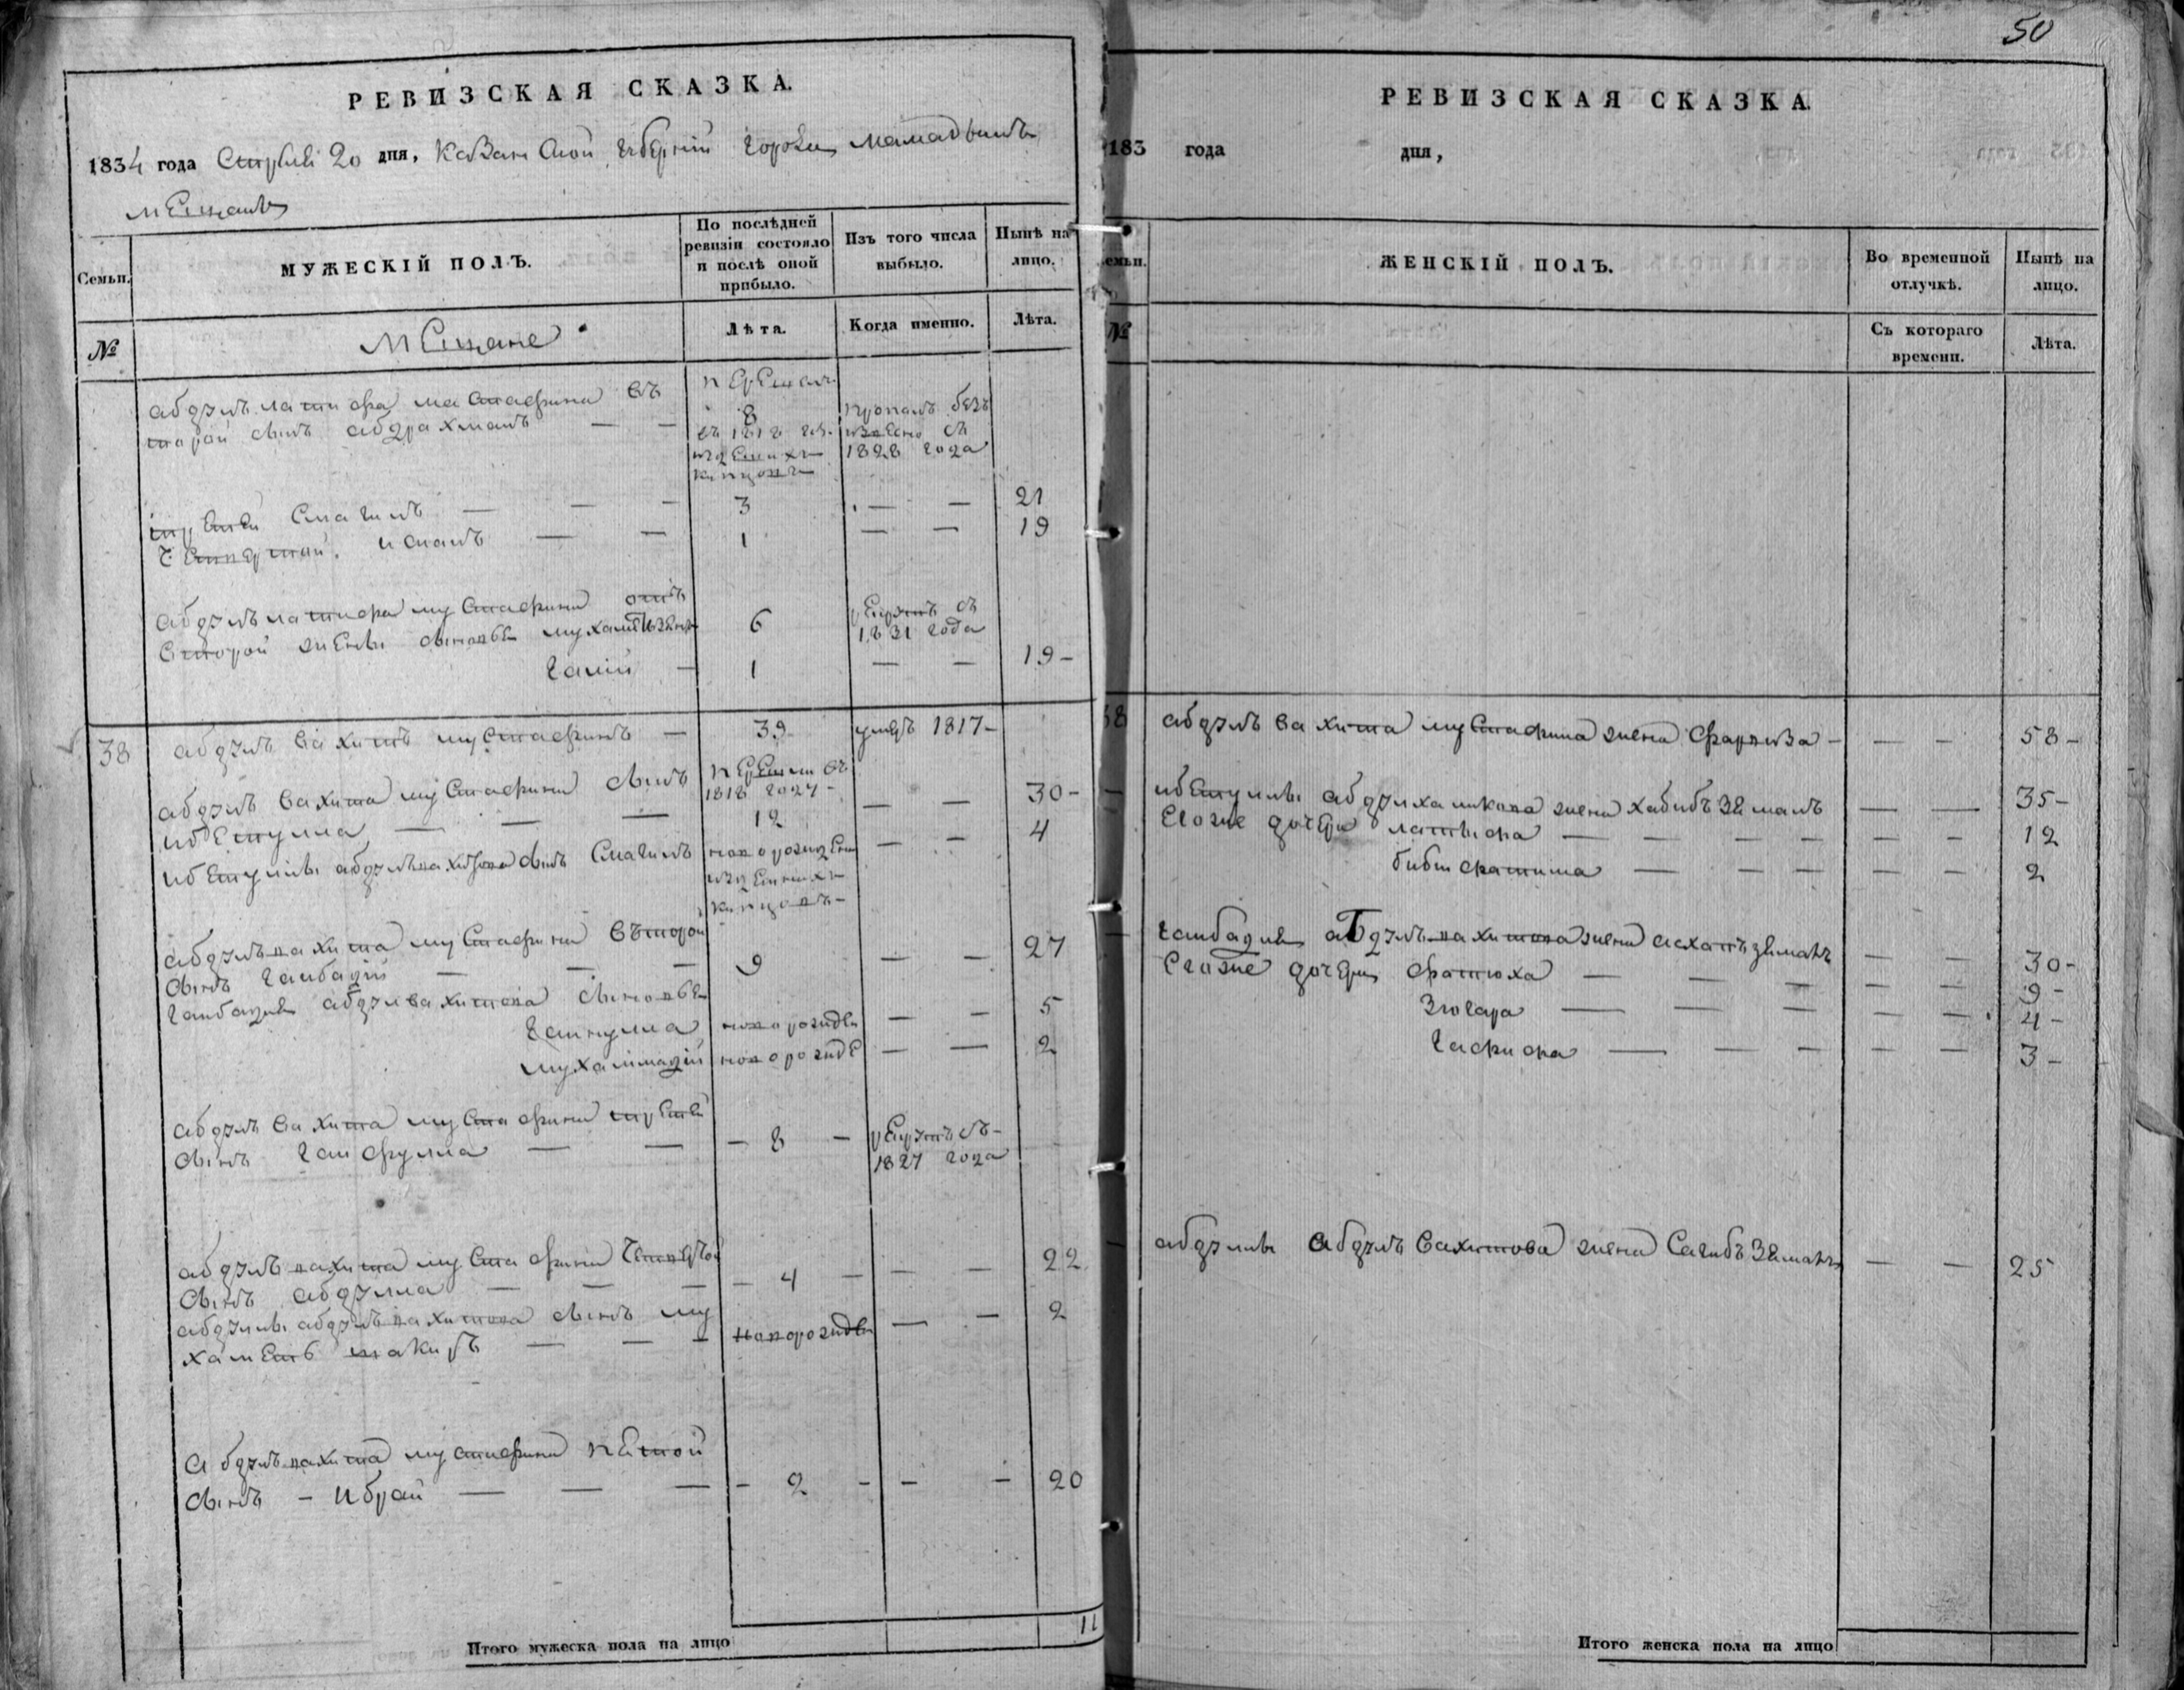 50
РЕВИЗСКАЯ СКАЗКА.
1834 года Апреля 20 дня, Казанской губернии города Мамадыша
мещанъ
Семьи. МУЖЕСКІЙ ПОЛЪ. По послѣдней ревизіи состояло и послѣ оной прибыло. Изъ того числа выбыло. Нынѣ на лицо.
№ мещане Лѣта. Когда именно. Лѣта.
абдулъ латифа мустафина въ перешелъ
торой сынъ абдрахманъ — — 8 пропалъ безъ
въ 1818 из 1828 года
купцовъ
третей Смагилъ — — — 3 — — 21
четвертой исмаъ — — 1 — — 19
абдулъ латифа мустафина отъ
второй жены сыновья 6 рекрутъ въ 1831 года
галий — 1 — — 19 —
38 абдулъ вахитъ мустафинъ — 39 умеръ 1817 —
абдулъ вахита мустафина сынъ перешли въ 1818 году —
ибетулла — — — 12 — — 30 —
ибетуллы абдулвахитова сынъ Смагилъ новорожден — — 4
купцовъ —
абдулъ вахита мустафина второй
сынъ гаибадий — — — 9 — — 27
гаибадия абдулвахитова сыновья
гаинулла новорожде — — 5
мухаммадий новорожде — — 2
абдулъ вахита мустафина третей
сынъ гаифулла — — — 8 — рекрутъ въ —
1827 года
абдулъ вахита мустафина четвертой
сынъ абдулла — — — — 4 — — — 22
абдуллы абдулъ вахитова сынъ му
хаметь шакиръ — — — новорожде — — 2
абдулъ вахита мустафина петой
сынъ — ибрай — — — — 2 — — — 20
Итого мужеска пола на лицо 11
РЕВИЗСКАЯ СКАЗКА.
183 года дня,
Семьи. ЖЕНСКІЙ ПОЛЪ. Во временной отлучкѣ. Нынѣ на лицо.
№ Съ котораго времени. Лѣта.
38 абдулъ вахита мустафина жена — — — 58 —
— ибетуллы жена хабибъ земалъ — — 35 —
Егоже дочери латыфа — — — — — — 12
биби фатима — — — — — 2
— гаибадия абдулъ вахитова жена — — 30 —
Егоже дочери — — — — — 9 —
Зюгара — — — — — 4 —
гафифа — — — — — 3 —
— абдуллы абдулъ вахитова жена Сагибъ Земалъ — — 25
Итого женска пола на лицо